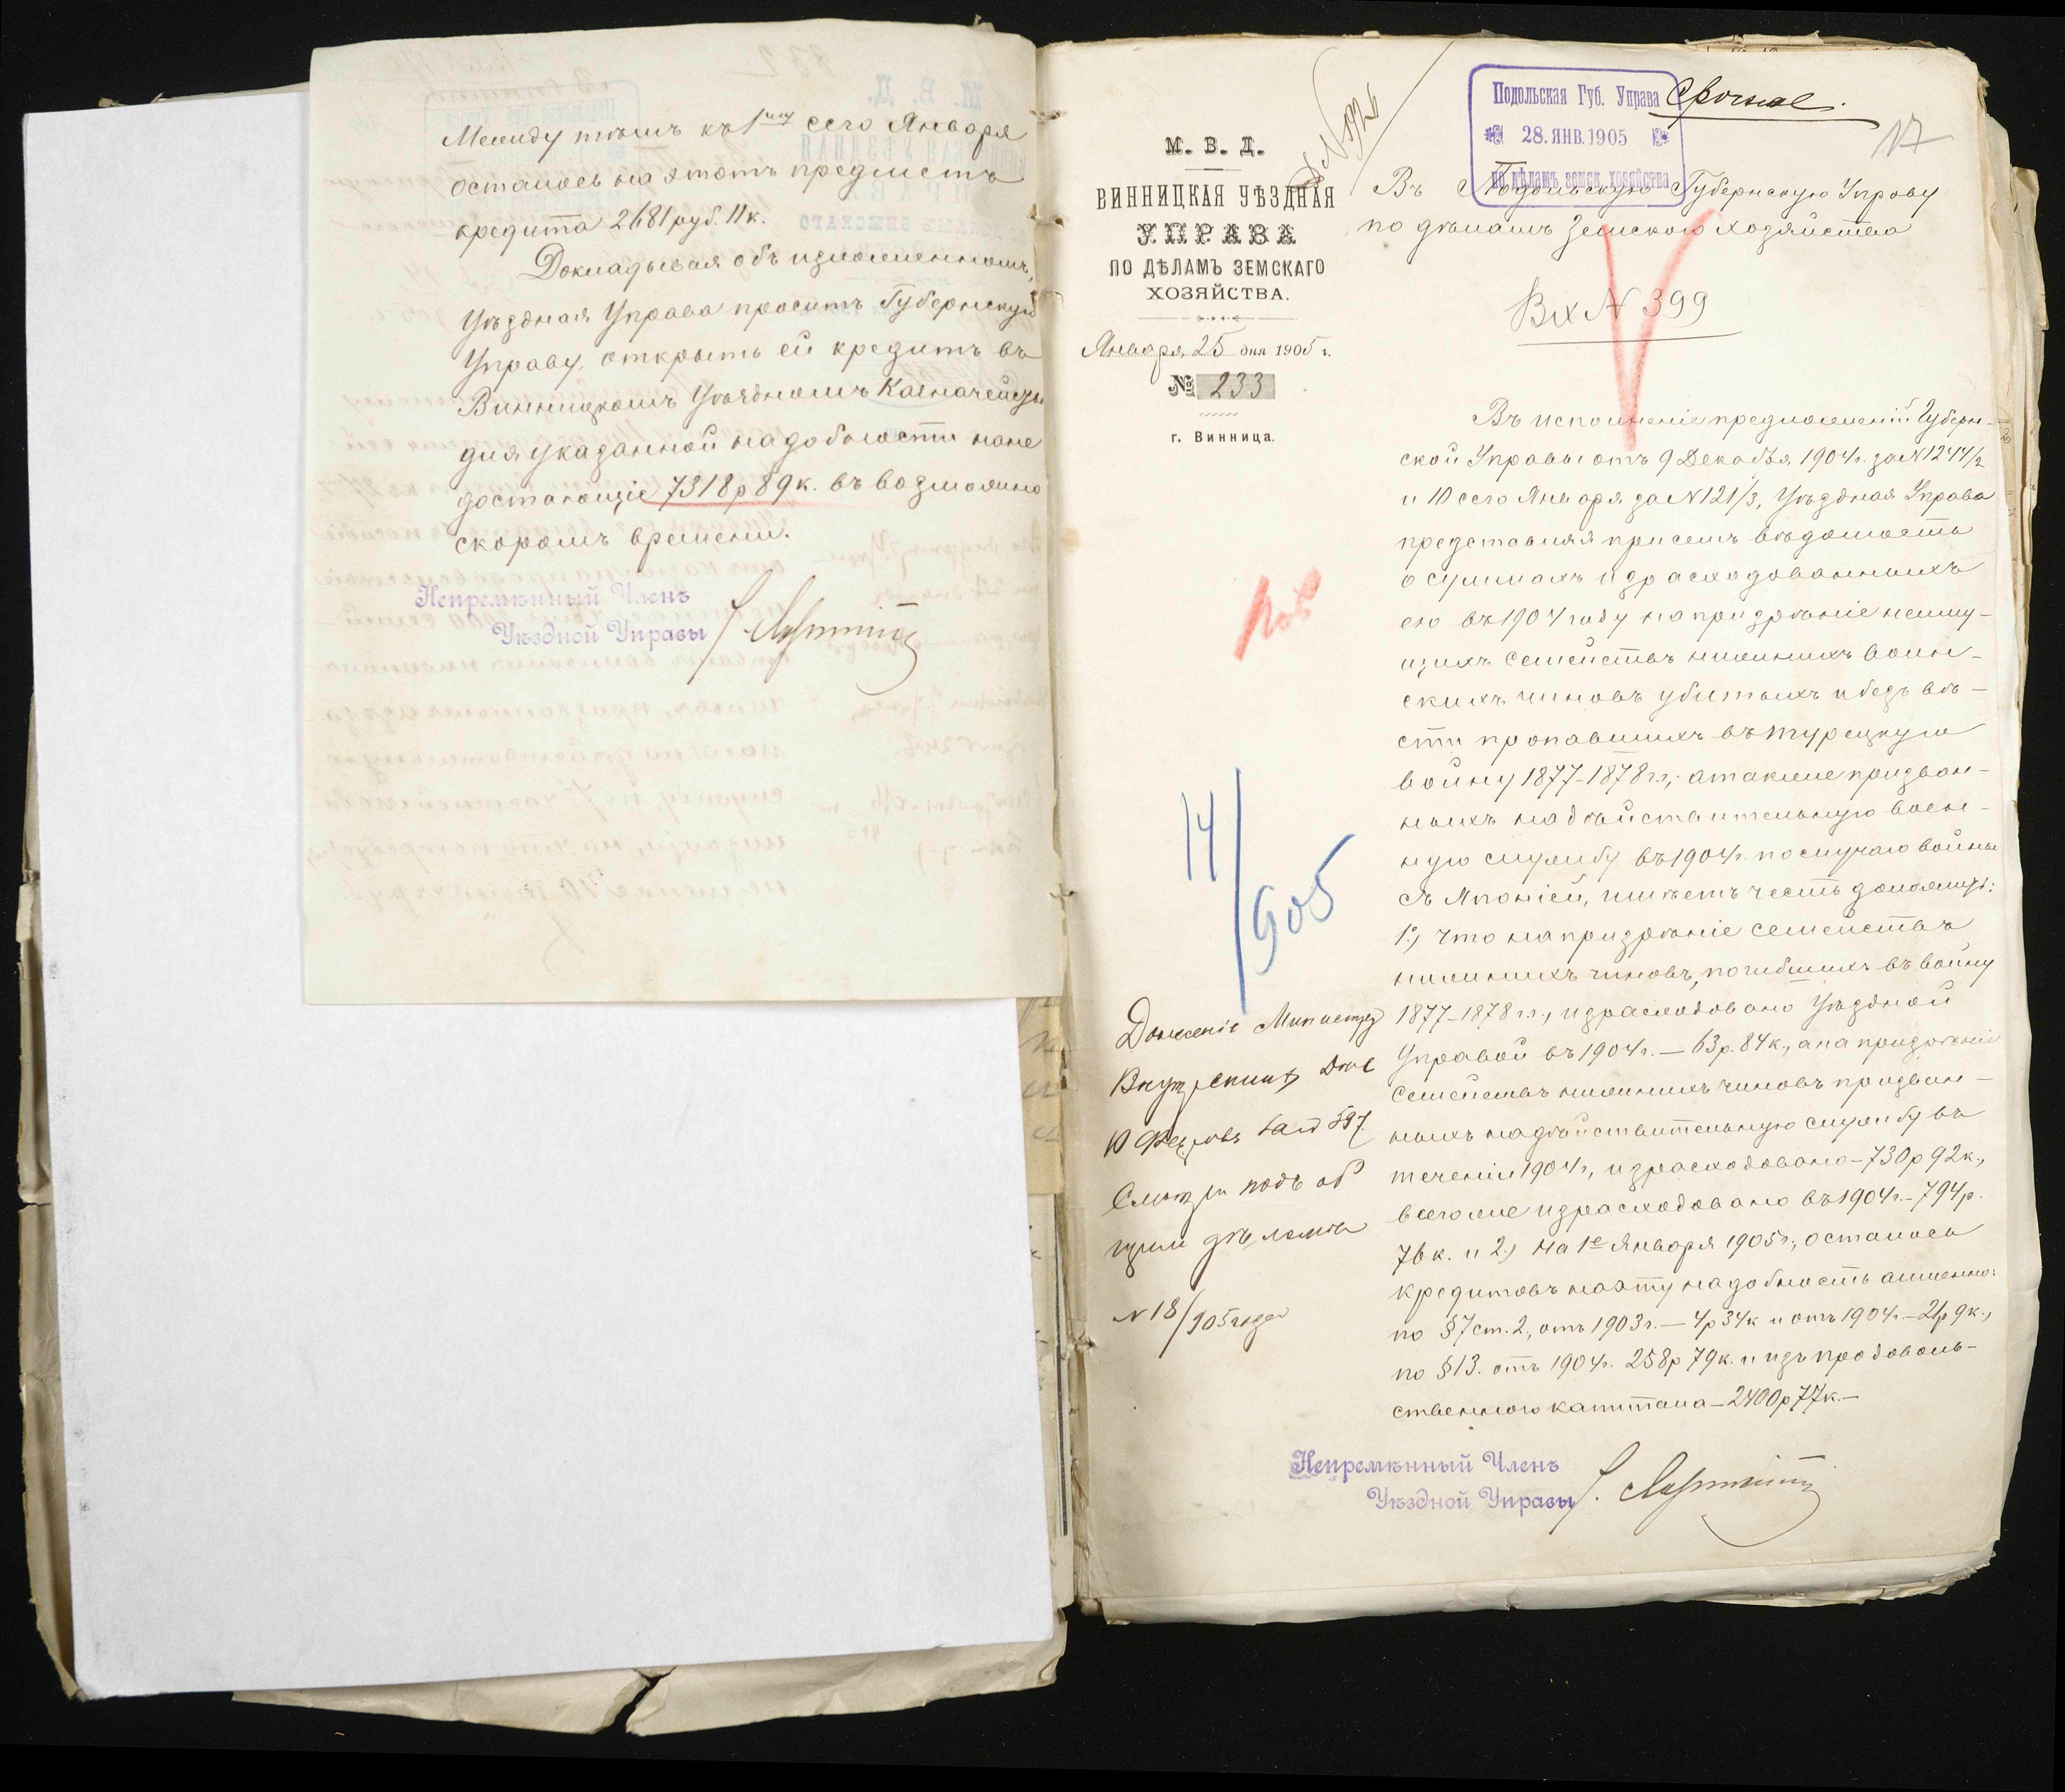 Между тѣмъ къ 1му сего Января
осталось на этотъ предметъ
кредита 2681 руб. 11 к.
Докладывая объ изложенномъ,
Уѣздная Управа проситъ Губернскую
Управу, открыть ей кредитъ въ
Винницкомъ Уѣздномъ Казначейст
для указанной надобности на не
достающіе 7318 р 89 к. въ возможно
скоромъ времени.
Непремѣнный Членъ
Уѣздной Управы
М. В. Д.
ВИННИЦКАЯ УѢЗДНАЯ
УПРАВА
ПО ДѢЛАМЪ ЗЕМСКАГО
ХОЗЯЙСТВА.
Января 25 дня 1905 г.
№ 233
г. Винница.
Подольская Губ. Управа
28. ЯНВ. 1905
по дѣламъ земск. хозяйства
Срочное.
17
Въ Подольскую Губернскую Управу
по дѣламъ Земскаго Хозяйства
Вх № 399
Въ исполненіе предложеній Губерн-
ской Управы отъ 9 Декабря 1904 г. за № 1244/2
и 10 сего Января за № 121/3, Уѣздная Управа
представляя при семъ вѣдомость
о суммахъ израсходованныхъ
ею въ 1904 году на призрѣніе неиму-
щихъ семействъ нижнихъ воин-
скихъ чиновъ убитыхъ и безъ вѣ-
сти пропавшихъ въ турецкую
войну 1877-1878 г.г., а также призван-
ныхъ на дѣйствительную воен-
ную службу въ 1904 г. по случаю войны
съ Японіей, имѣетъ честь доложить:
1., что на призрѣніе семействъ
нижнихъ чиновъ, погибшихъ въ войну
1877-1878 г.г., израсходовано Уѣздной
Управой въ 1904 г. — 63 р. 84 к., а на призрѣніе
семействъ нижнихъ чиновъ призван-
ныхъ на дѣйствительную службу въ
теченіи 1904 г., израсходовано - 730 р 92 к.,
всего же израсходовано въ 1904 г. - 794 р.
76 к. и 2.) На 1е Января 1905 г., осталось
кредитовъ на эту надобность а именно:
по § 7 ст. 2, отъ 1903 г. — 4 р 34 к и отъ 1904 г. - 21 р 9 к.,
по § 13. отъ 1904 г. 258 р 79 к. и изъ продоволь-
ственнаго капитала - 2400 р 77 к. -
14/905
Донесеніе Министру
Внутреннихъ Дѣлъ
10 Февраля за № 597.
Смотри подъ об
щимъ дѣломъ
№ 18/905 года
Непремѣнный Членъ
Уѣздной Управы